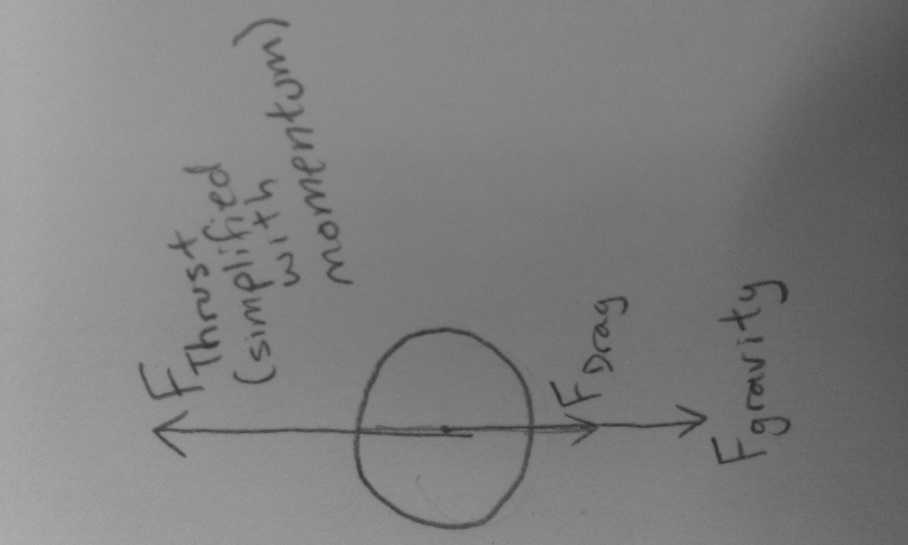 F Thrust
(simplified
with
momentum)
F Drag
F gravity